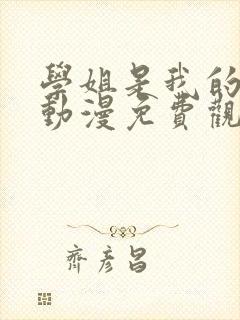 學姐是我的
動漫免費觀
齊彥昌